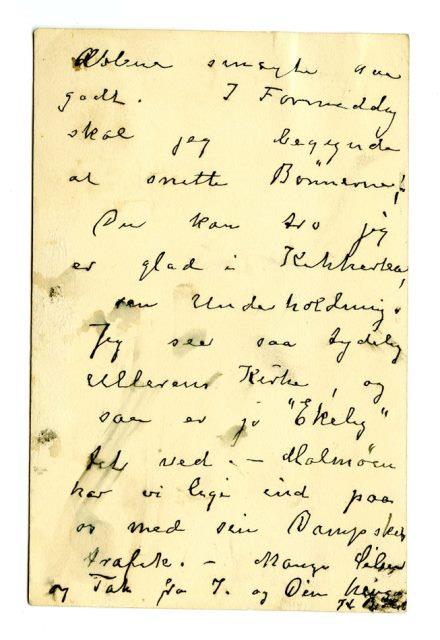 Æblene smagte saa
godt. I Formiddag
skal jeg begynde
at snitte Bönnerne!
Du kan tro jeg
er glad i Kikkerten,
ren Underholdning.
Jeg ser saa tydelig
Ullerens Kirke, og
saa er jo "Ekely"
tæt ved. — Malmöen
har vi lige ind paa
os med sin Dampskibs
trafik. — Mange Hilsner
og Tak fra J. og Din